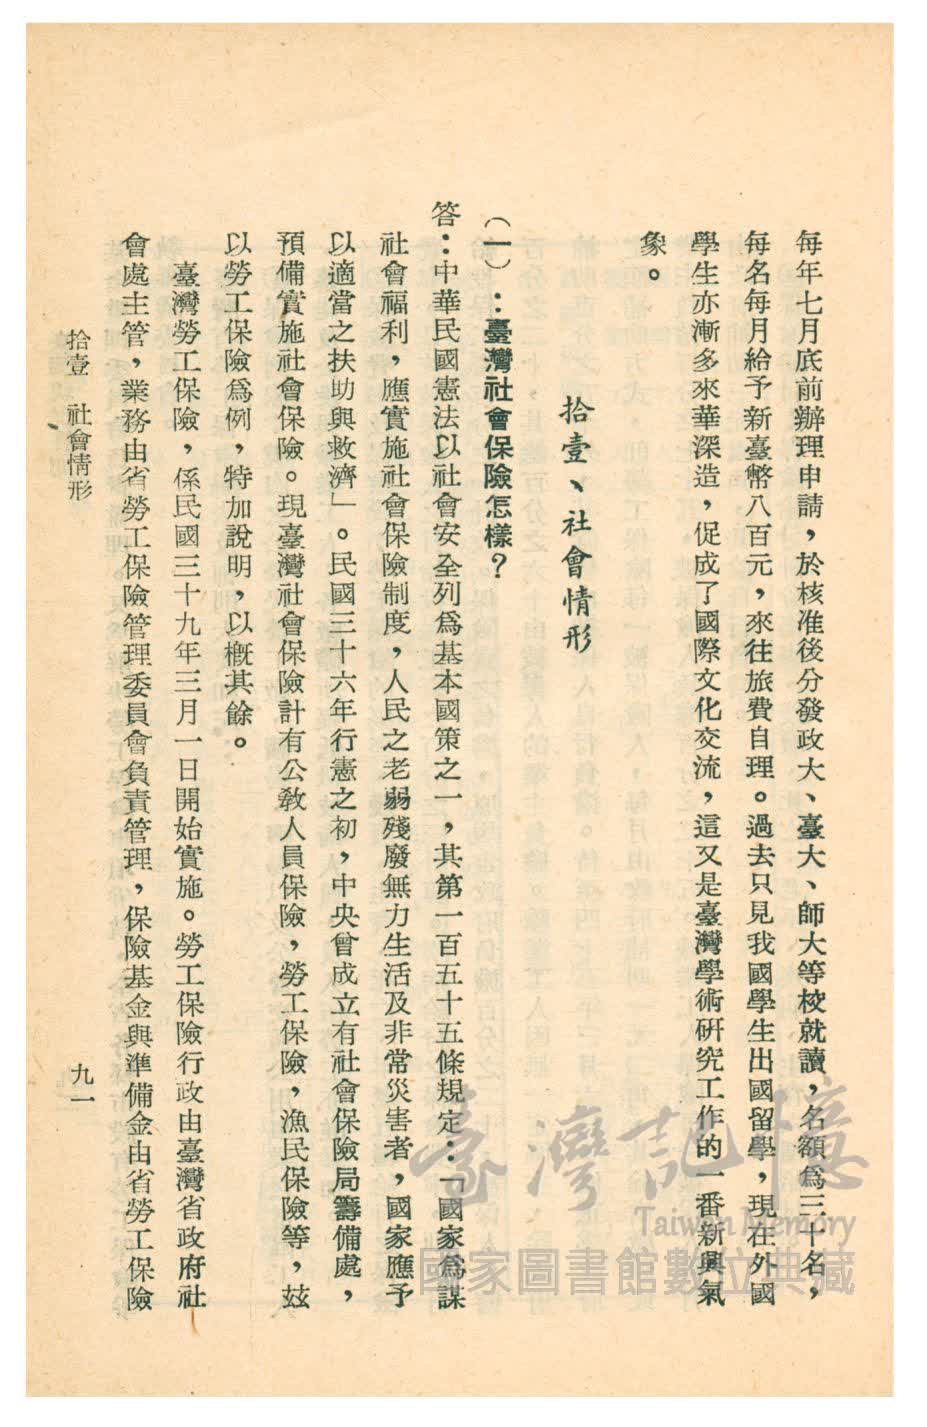 每年七月底前辦理申請，於核准後分發政大、臺大、師大等校就讀，名額爲三十名，
每名每月給予新臺幣八百元，來往旅費自理。過去只見我國學生出國留學，現在外國
學生亦漸多來華深造，促成了國際文化交流，這又是臺灣學術硏究工作的一番新興氣
象。
拾壹、社會情形
（一）：臺灣社會保險怎樣？
答：中華民國憲法以社會安全列爲基本國策之一，其第一百五十五條規定：「國家爲謀
社會福利，應實施社會保險制度，人民之老弱殘廢無力生活及非常災害者，國家應予
以適當之扶助與救濟」。民國三十六年行憲之初，中央曾成立有社會保險局籌備處，
預備實施社會保險。現臺灣社會保險計有公敎人員保險，勞工保險，漁民保險等，玆
以勞工保險爲例，特加說明，以槪其餘。
臺灣勞工保險，係民國三十九年三月一日開始實施。勞工保險行政由臺灣省政府社
會處主管，業務由省勞工保險管理委員會負責管理，保險基金與準備金由省勞工保險
拾壹　社會情形
九一
臺灣記憶
Taiwan Memory
國家圖書館數位典藏